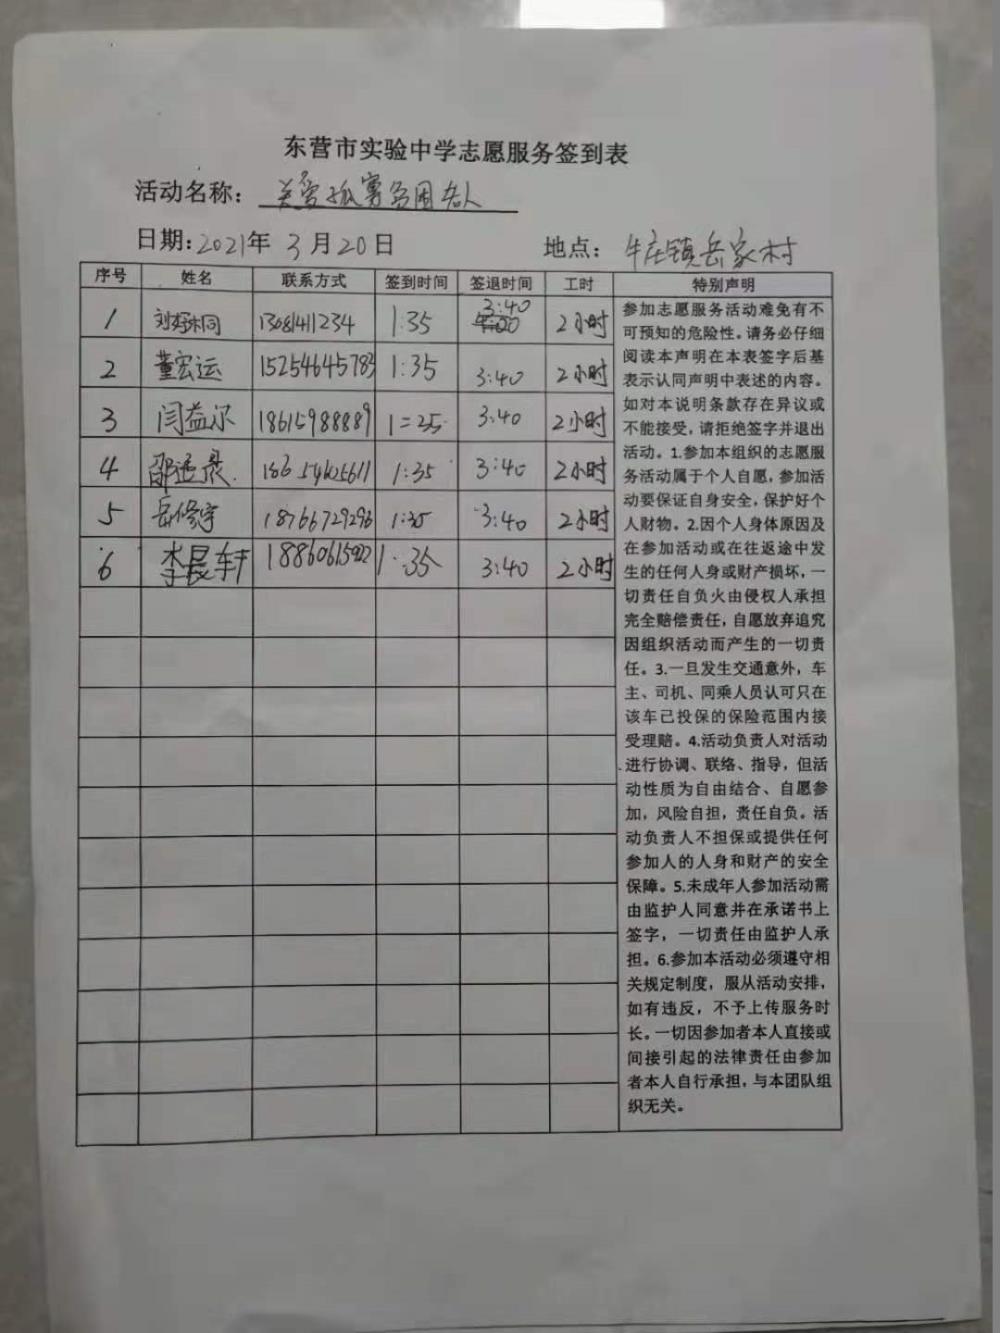 东营市实验中学志愿服务签到表
活动名称：关爱孤寡贫困老人
日期：2021年 3月20日 地点：牛庄镇岳家村
序号 姓名 联系方式 签到时间 签退时间 工时 特别声明
1 1:35 3:40 2小时
2 董宏运 15254645783 1:35 3:40 2小时
3 闫益尔 18615988889 1:25 3:40 2小时
4 1:35 3:40 2小时
5 岳修宇 18766729296 1:35 3:40 2小时
6 李晨轩 1:35 3:40 2小时
参加志愿服务活动难免有不
可预知的危险性。请务必仔细
阅读本声明在本表签字后基
表示认同声明中表述的内容。
如对本说明条款存在异议或
不能接受，请拒绝签字并退出
活动。1.参加本组织的志愿服
务活动属于个人自愿，参加活
动要保证自身安全，保护好个
人财物。2.因个人身体原因及
在参加活动或在往返途中发
生的任何人身或财产损坏，一
切责任自负火由侵权人承担
完全赔偿责任，自愿放弃追究
因组织活动而产生的一切责
任。3.一旦发生交通意外，车
主、司机、同乘人员认可只在
该车已投保的保险范围内接
受理赔。4.活动负责人对活动
进行协调、联络、指导，但活
动性质为自由结合、自愿参
加，风险自担，责任自负。活
动负责人不担保或提供任何
参加人的人身和财产的安全
保障。5.未成年人参加活动需
由监护人同意并在承诺书上
签字，一切责任由监护人承
担。6.参加本活动必须遵守相
关规定制度，服从活动安排，
如有违反，不予上传服务时
长。一切因参加者本人直接或
间接引起的法律责任由参加
者本人自行承担，与本团队组
织无关。